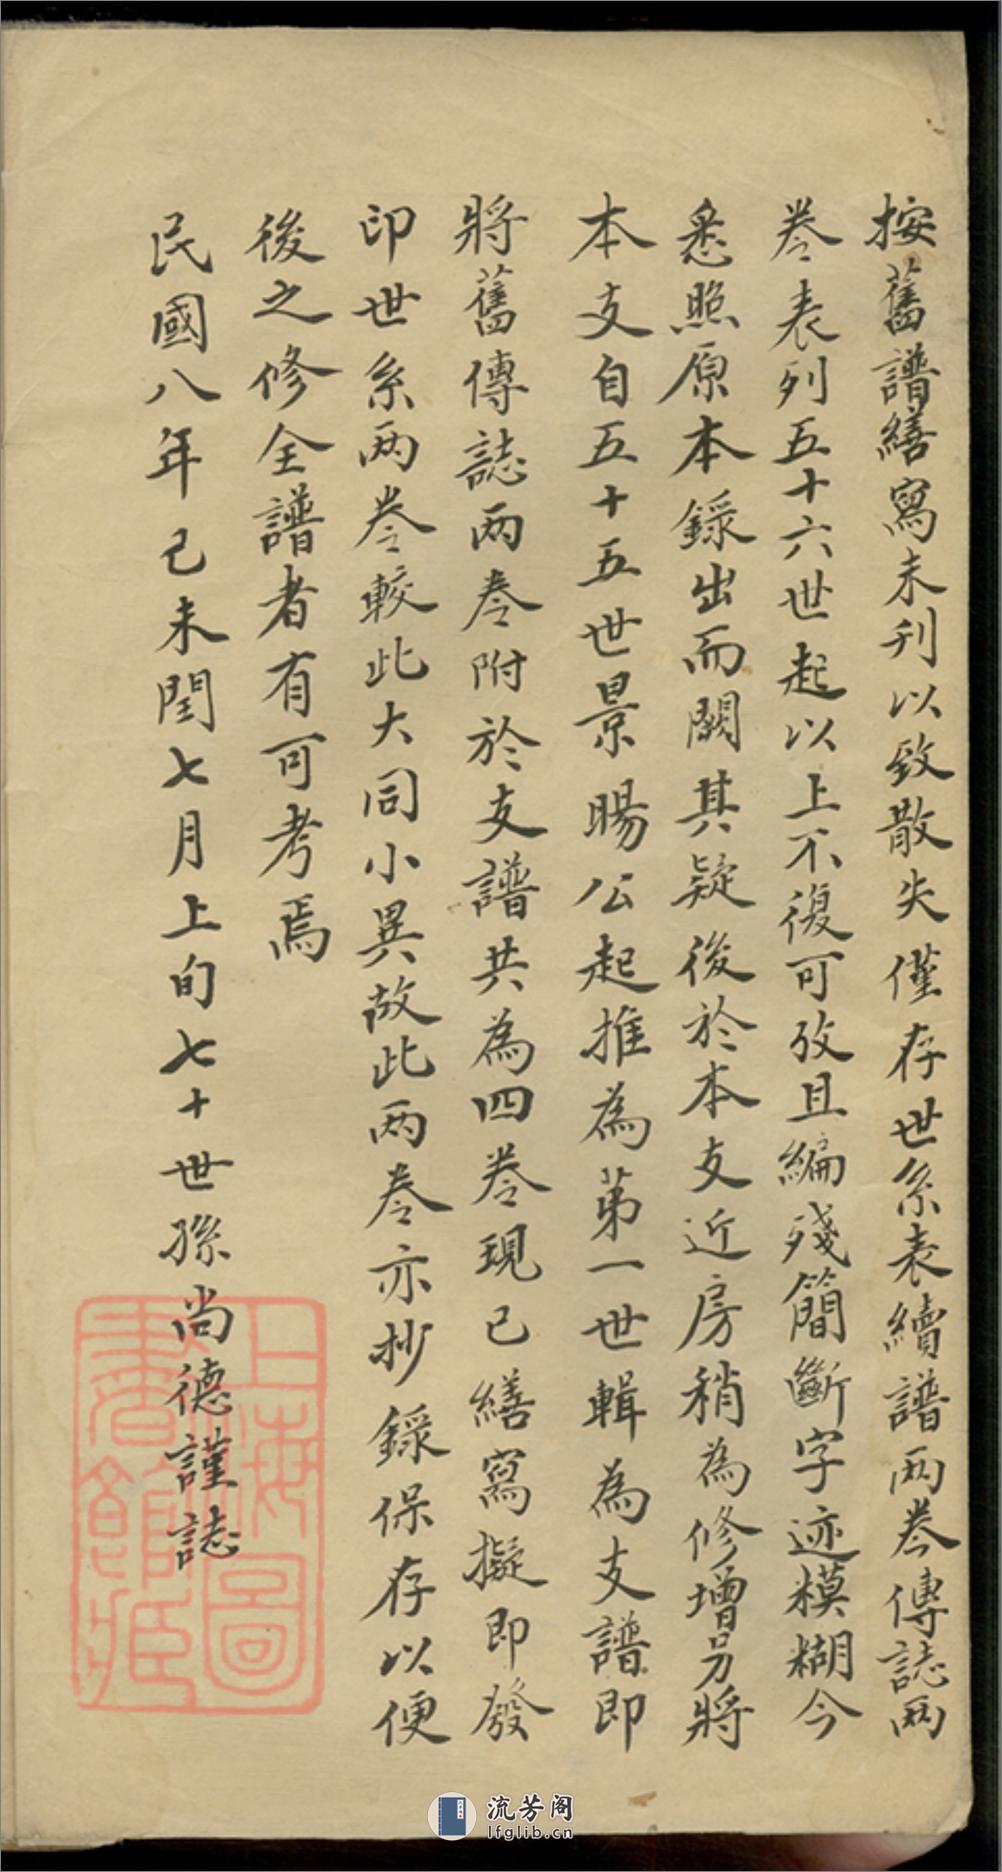 按舊譜繕寫未刊以致散失僅存世系表續譜两卷傳誌两
卷表列五十六世起以上不復可攷且編殘簡斷字迹糢糊今
悉照原本錄出而闕其疑後於本支近房稍為修增另將
本支自五十五世景暘公起推為第一世輯為支譜即
將舊傳誌两卷附於支譜共為四卷現已繕寫擬即發
印世系两卷較此大同小異故此两卷亦抄錄保存以便
後之修全譜者有可考焉
民國八年己未閏七月上旬七十世孫尚德謹誌
上海圖
書館藏
流芳阁
lfglib.cn